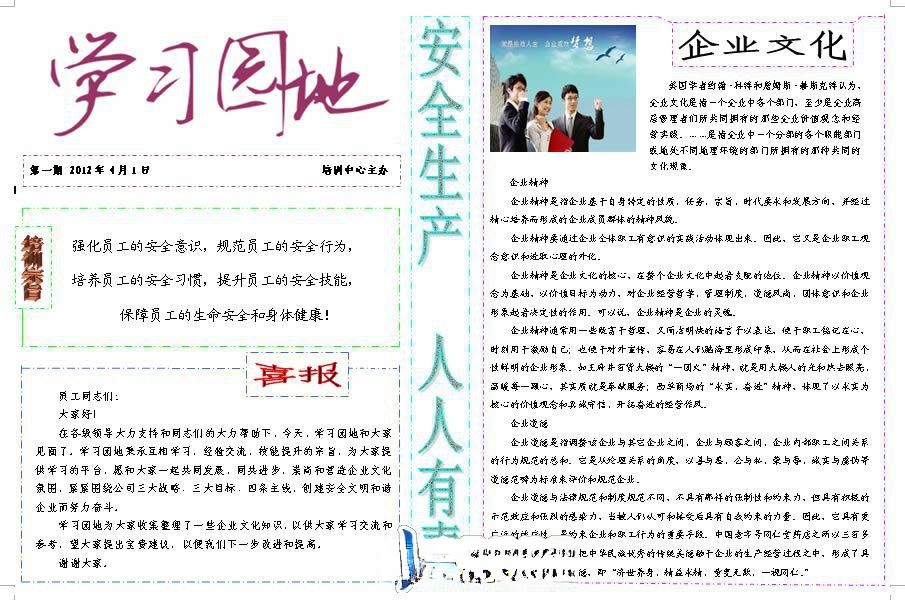 学习园地
第一期 2012年4月1日
培训中心主办
培训宗旨
强化员工的安全意识，规范员工的安全行为，
培养员工的安全习惯，提升员工的安全技能，
保障员工的生命安全和身体健康！
喜报
员工同志们：
大家好！
在各级领导大力支持和同志们的大力帮助下，今天，学习园地和大家
见面了。学习园地秉承互相学习，经验交流，技能提升的宗旨，为大家提
供学习的平台，愿和大家一起共同发展，同共进步，崇尚和营造企业文化
氛围，紧紧围绕公司三大战略，三大目标，四条主线，创建安全文明和谐
企业而努力奋斗。
学习园地为大家收集整理了一些企业文化知识，以供大家学习交流和
参考，望大家提出宝贵建议，以便我们下一步改进和提高。
谢谢大家。
安全生产 人人有责
梦想
企业文化
英国学者约翰·科特和詹姆斯·赫斯克特认为，
企业文化是指一个企业中各个部门，至少是企业高
层管理者们所共同拥有的那些企业价值观念和经
营实践。……是指企业中一个分部的各个职能部门
或地处不同地理环境的部门所拥有的那种共同的
文化现象。
企业精神
企业精神是指企业基于自身特定的性质，任务，宗旨，时代要求和发展方向，并经过
精心培养而形成的企业成员群体的精神风貌。
企业精神要通过企业全体职工有意识的实践活动体现出来。因此，它又是企业职工观
念意识和进取心理的外化。
企业精神是企业文化的核心，在整个企业文化中起着支配的地位。企业精神以价值观
念为基础，以价值目标为动力，对企业经营哲学，管理制度，道德风尚，团体意识和企业
形象起着决定性的作用。可以说，企业精神是企业的灵魂。
企业精神通常用一些既富于哲理，又简洁明快的语言予以表达，便于职工铭记在心，
时刻用于激励自己；也便于对外宣传，容易在人们脑海里形成印象，从而在社会上形成个
性鲜明的企业形象。如王府井百货大楼的“一团火”精神，就是用大楼人的光和热去照亮，
温暖每一颗心，其实质就是奉献服务；西单商场的“求实，奋进”精神，体现了以求实为
核心的价值观念和真诚守信，开拓奋进的经营作风。
企业道德
企业道德是指调整该企业与其它企业之间，企业与顾客之间，企业内部职工之间关系
的行为规范的总和。它是从伦理关系的角度，以善与恶，公与私，荣与辱，诚实与虚伪等
道德范畴为标准来评价和规范企业。
企业道德与法律规范和制度规范不同，不具有那样的强制性和约束力，但具有积极的
示范效应和强烈的感染力，当被人们认可和接受后具有自我约束的力量。因此，它具有更
约束企业和职工行为的重要手段。中国老字号同仁堂药店之所以三百多
把中华民族优秀的传统美德融于企业的生产经营过程之中，形成了具
德，即“济世养身，精益求精，童叟无欺，一视同仁。”